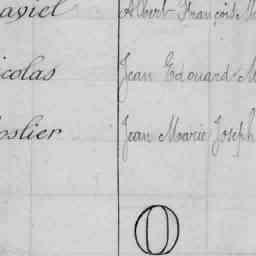 Albert François
icolas Jean Edouard M
oslier Jean Marie Joseph
O